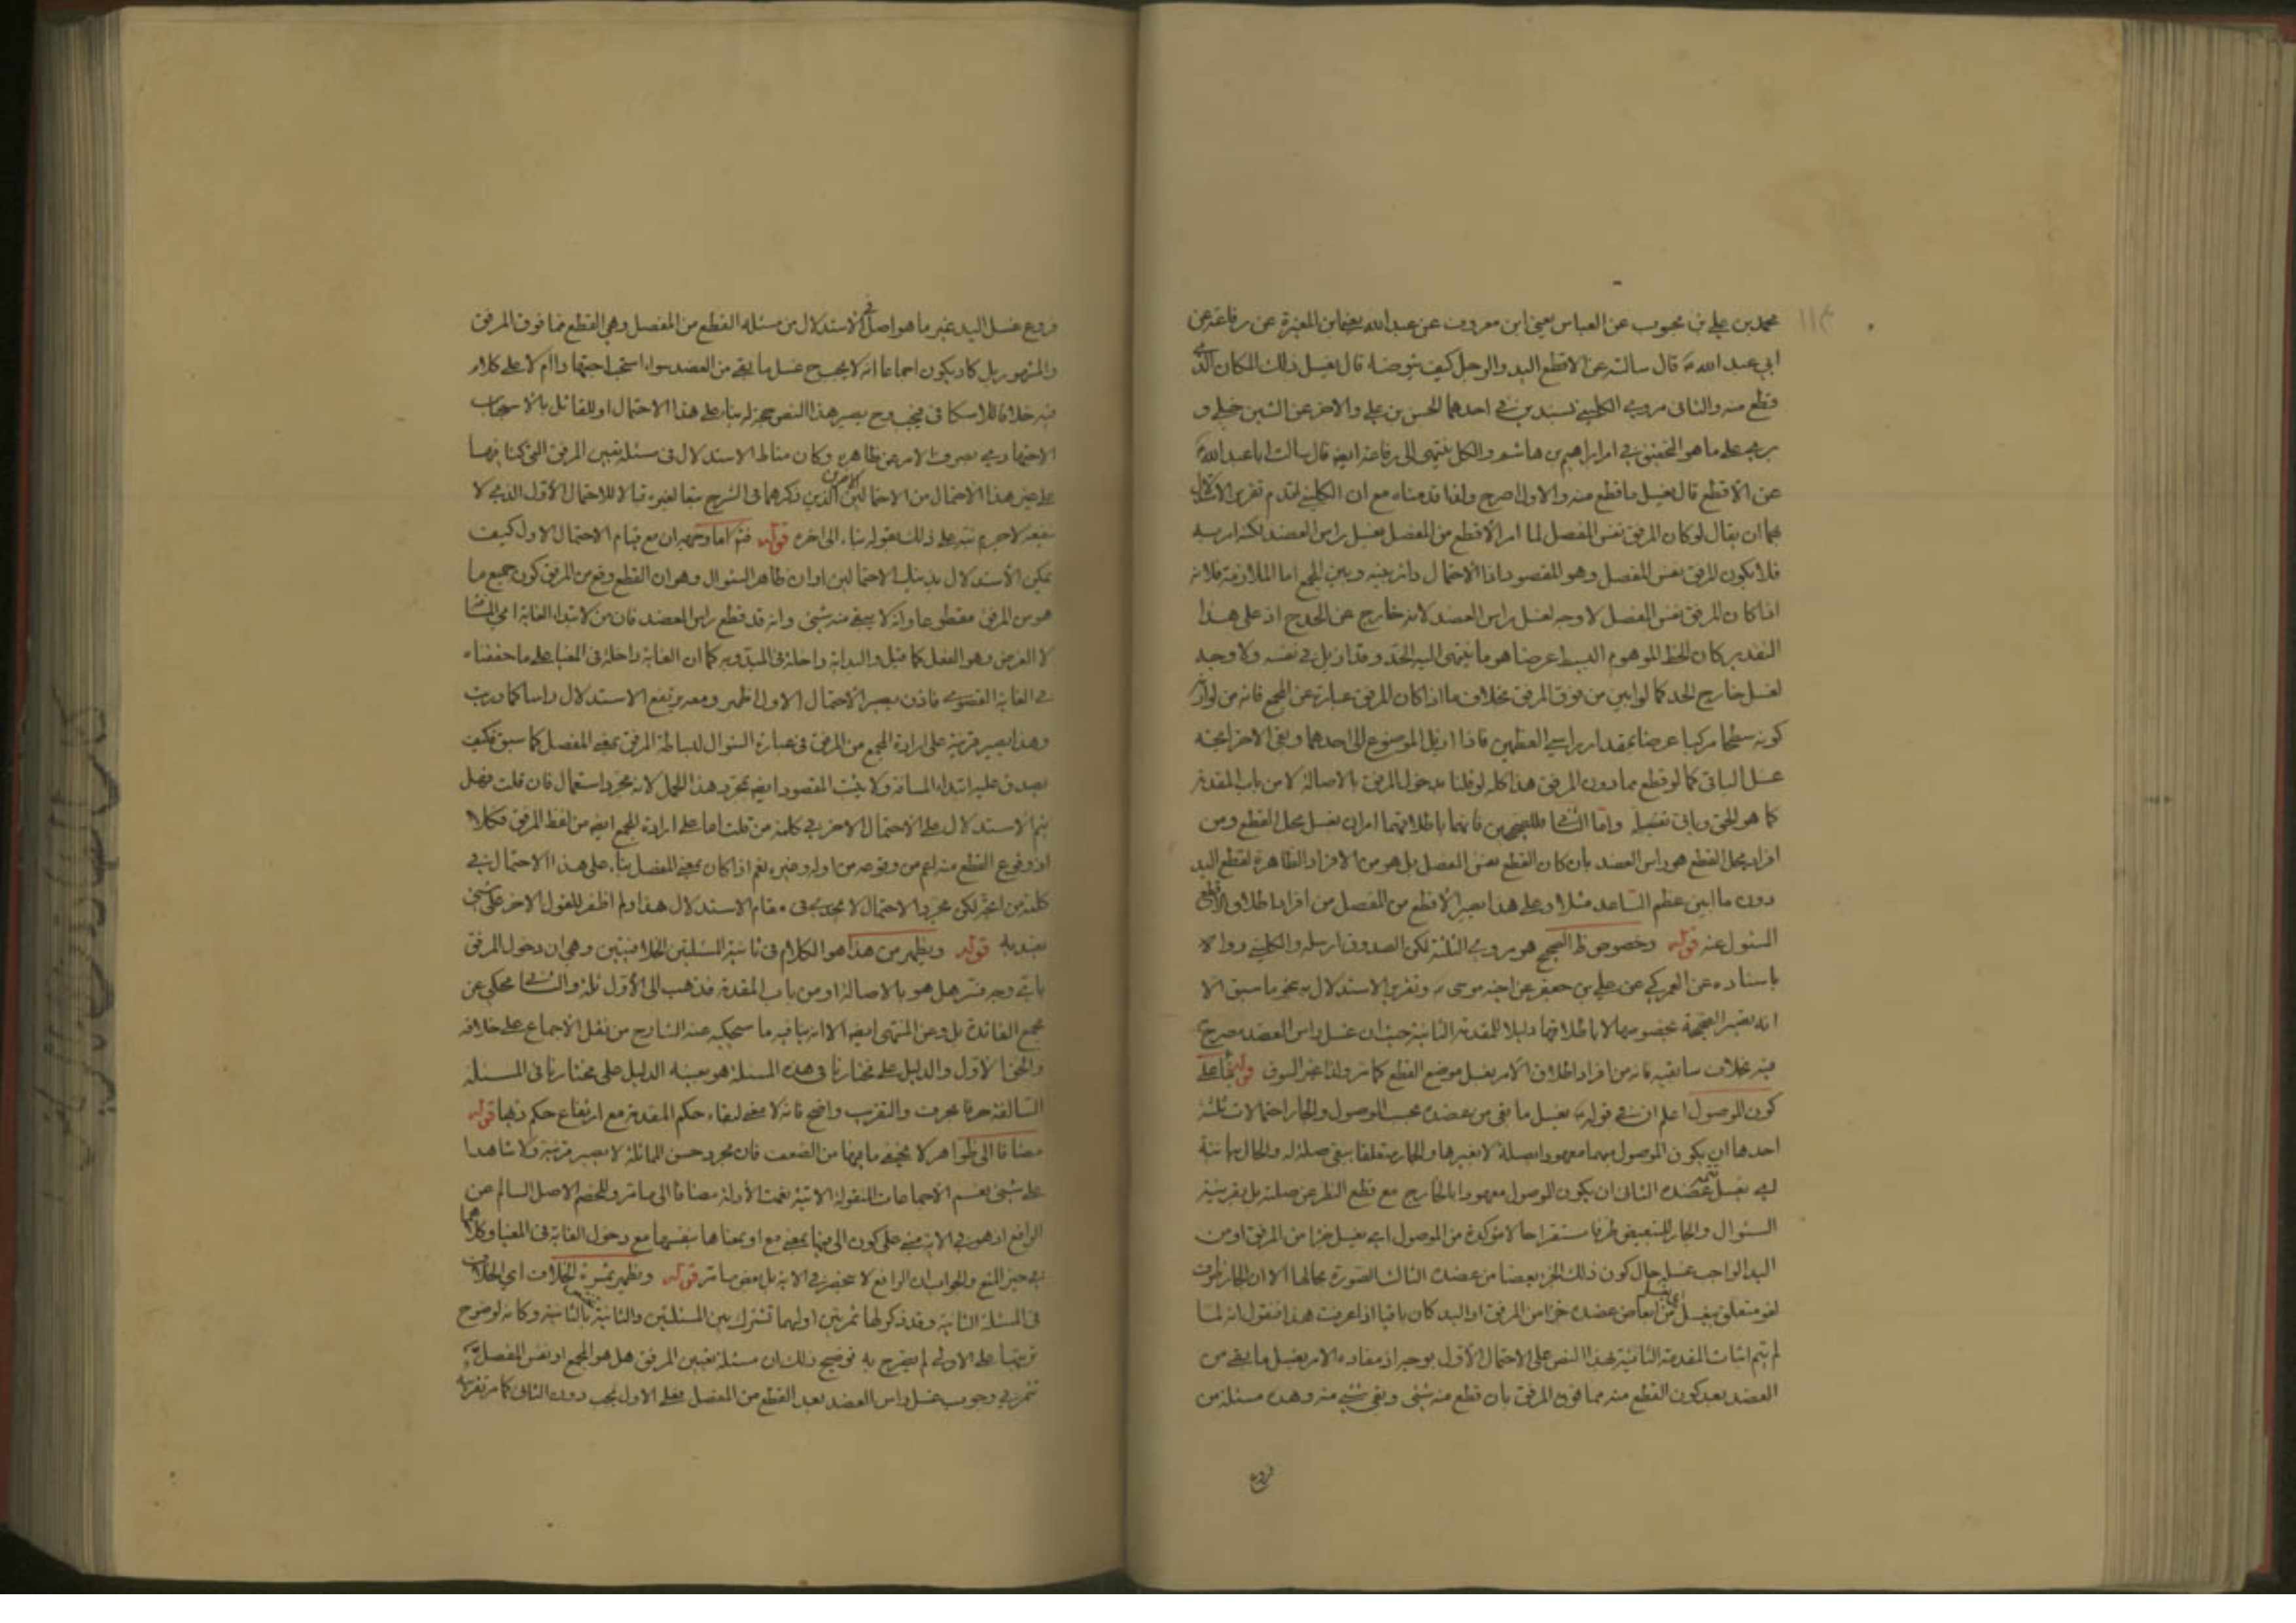 محمد بن علي بن محبوب عن العباس يعني ابن معروف عن عبد الله يعني ابن المغيرة عن رفاعة عن
ابي عبد الله ع قال سالته عن الاقطع اليد والرجل كيف يتوضا قال يغسل ذلك المكان الذي
قطع منه والثاني مروي الكليني بسندين في احدهما الحسن بن علي والاخر عن الشيخ
على ما هو التحقيق في امر ابراهيم بن هاشم والكل ينتهي الى رفاعة ايضا قال سالت ابا عبد الله ع
عن الاقطع قال يغسل ما قطع منه والاول اصرح ولذا قدمناه مع ان الكليني اقدم تقرير الاستدلال
بهما ان يقال لو كان المرفق نفس المفصل لما امر الاقطع من المفصل بغسل راس العضد لكنه امر به
فلا يكون المرفق نفس المفصل وهو المقصود اذا الاحتمال دائر بينه وبين المجمع اما الملازمة فلانه
اذا كان المرفق نفس المفصل لا وجه لغسل راس العضد لانه خارج عن الحد ح اذ على هذا
التقدير كان الخط الموهوم البسيط عرضا هو ما ينتهي اليه الحد وقد ازيل في نفسه ولا وجه
لغسل خارج الحد كما لو ابين من فوق المرفق بخلاف ما اذا كان المرفق عبارة عن المجمع فانه من لوازم
كونه سطحا مركبا عرضا بمقدار راسي العظمين فاذا ازيل الموضوع الى احدهما وبقي الاخر
غسل الباقي كما لو قطع مما دون المرفق هذا كله لو قلنا بدخول المرفق بالاصالة لا من باب المقدمة
كما هو الحق وياتي تفصيله واما الثاني فللصحيحين فانهما باطلاقهما امرا بغسل محل القطع ومن
افراد محل القطع هو راس العضد بان كان القطع نفس المفصل بل هو من الافراد الظاهرة لقطع اليد
دون ما ابين عظم الساعد مثلا وعلى هذا يصير الاقطع من المفصل من افراد اطلاق الاقطع
السئول عنه قوله وخصوص ظ الصحيح هو مروي الثلثة لكن الصدوق ارسله والكليني رواه
باسناده عن العمركي عن علي بن جعفر عن اخيه موسى ع وتقرير الاستدلال به نحو ما سبق الا
انه يصير الصحيحة بخصوصها لا باطلاقها دليلا للمقدمة الثانية حيث ان غسل راس العضد مصرح
فيه بخلاف سابقيه فانه من افراد اطلاق الامر بغسل موضع القطع كما مر ولذا غير السوق قوله بناء على
كون الموصول اعلم ان في قوله ع يغسل ما بقي من عضده بحسب الموصول والجار احتمالات ثلثة
احدها ان يكون الموصول مبهما معهودا بصلته لا بغيرها والجار متعلقا ببقي صلة له والحال بيانية
اي يغسل تتمة عضده الثاني ان يكون الموصول معهودا بالخارج مع قطع النظر عن صلته بل بقرينة
السئوال والجار للتبعيض ظرفا مستقرا حالا مؤكدة من الموصول اي يغسل جزا من المرفق او من
اليد الواجب غسله حال كون ذلك الجزء بعضا من عضده الثالث الصورة بحالها الا ان الجار ظرف
لغو متعلق بيغسل اي يغسل من ابعاض عضده جزا من المرفق او اليد كان باقيا اذا عرفت هذا فنقول انه لما
لم يتم اثبات المقدمة الثانية بهذا النص على الاحتمال الاول بوجه اذ مفاده الامر بغسل ما بقي من
العضد بعد كون القطع منه مما فوق المرفق بان قطع منه شيئ وبقي شيئ منه وهذه مسئلة من
فروع
فروع غسل اليد غير ما هو اصل في الاستدلال من مسئلة القطع من المفصل وهي القطع مما فوق المرفق
والمشهور بل كاد يكون اجماعا انه لا يجب ح غسل ما بقي من العضد سواء استحب احتياطا ام لا على كلام
فيه خلافا للاسكافي فيجب وح يصير هذا النص حجة له بناء على هذا الاحتمال او للقائل بالاستحباب
الاحتياطي بصرف الامر عن ظاهره وكان مناط الاستدلال في مسئلة تعيين المرفق التي كنا فيها
على غير هذا الاحتمال من الاحتمالين الاخيرين الذين ذكرهما في الشرح تبعا لغيره قبالا للاحتمال الاول الذي لا
ينفعه لا جرم نبه على ذلك بقوله بناء الى اخره قوله فتم اما وجهه ان مع قيام الاحتمال الاول كيف
يمكن الاستدلال بذينك الاحتمالين او ان ظاهر السئوال وهو ان القطع وقع من المرفق كون جميع ما
هو من المرفق مقطوعا وانه لا يبقى منه شيئ وانه قد قطع راس العضد فان من لابتداء الغاية اي المسافة
لا الغرض وهو الفعل كما قيل والبداية داخلة في المبدو به كما ان الغاية داخلة في المغيا على ما حققناه
في الغاية القصوى فاذن يصير الاحتمال الاول اظهر ومعه يرتفع الاستدلال راسا كما دريت
وهذا يصير قرينة على ارادة المجمع من المرفق في عبارة السئوال لبساطة المرفق بمعنى المفصل كما سبق فكيف
يصدق عليه ابتداء المسافة ولا يثبت المقصود ايضا بمجرد هذا الحمل لانه مجرد استعمال فان قلت فهل
يتم الاستدلال على الاحتمال الاخر في كلمة من قلت اما على ارادة المجمع ايضا من لفظ المرفق فكلا
اذ وقوع القطع منه اعم من وقوعه من اوله وغيره نعم اذا كان بمعنى المفصل بناء على هذا الاحتمال في
كلمة من اتجه لكن مجرد الاحتمال لا يجدي في مقام الاستدلال هذا ولم اظفر للقول الاخر على شيئ
يعتد به قوله ويظهر من هذا هو الكلام في ثانية المسئلتين الخلافيتين وهي ان دخول المرفق
باي وجه فسر هل هو بالاصالة او من باب المقدمة فذهب الى الاول ثلة والثاني محكي عن
مجمع الفائدة بل وعن المنتهى ايضا الا انه ينافيه ما سيحكيه عنه الشارح من نقل الاجماع على خلافه
والحق الاول والدليل على مختارنا في هذه المسئلة هو بعينه الدليل على مختارنا في المسئلة
السالفة حرفا بحرف والتقريب واضح فانه لا معنى لبقاء حكم المقدمة مع ارتفاع حكم ذيها قوله
مضافا الى ظواهر لا يخفى ما فيها من الضعف فان مجرد حسن المماثلة لا يصير قرينة ولا شاهدا
على شيئ نعم الاجماعات المنقولة الاتية نعمت الادلة مضافا الى ما مر وللخصم الاصل السالم عن
الرافع اذ هو في الاية مبني على كون الى فيها بمعنى مع او بمعناها بنفسها مع دخول الغاية في المغيا وكلاهما
في حيز المنع والجواب ان الرافع لا ينحصر في الاية بل بعض ما مر قوله ويظهر ثمرة الخلاف اي الخلاف
في المسئلة الثانية وقد ذكر لها ثمرتين اوليهما تشترك بين المسئلتين والثانية تختص بالثانية وكانه لوضوح
ترتبها على الاولى لم يصرح به توضيح ذلك ان مسئلة تعيين المرفق هل هو المجمع او نفس المفصل
تثمر في وجوب غسل راس العضد بعد القطع من المفصل فعلى الاول يجب دون الثاني كما مر تقريبه